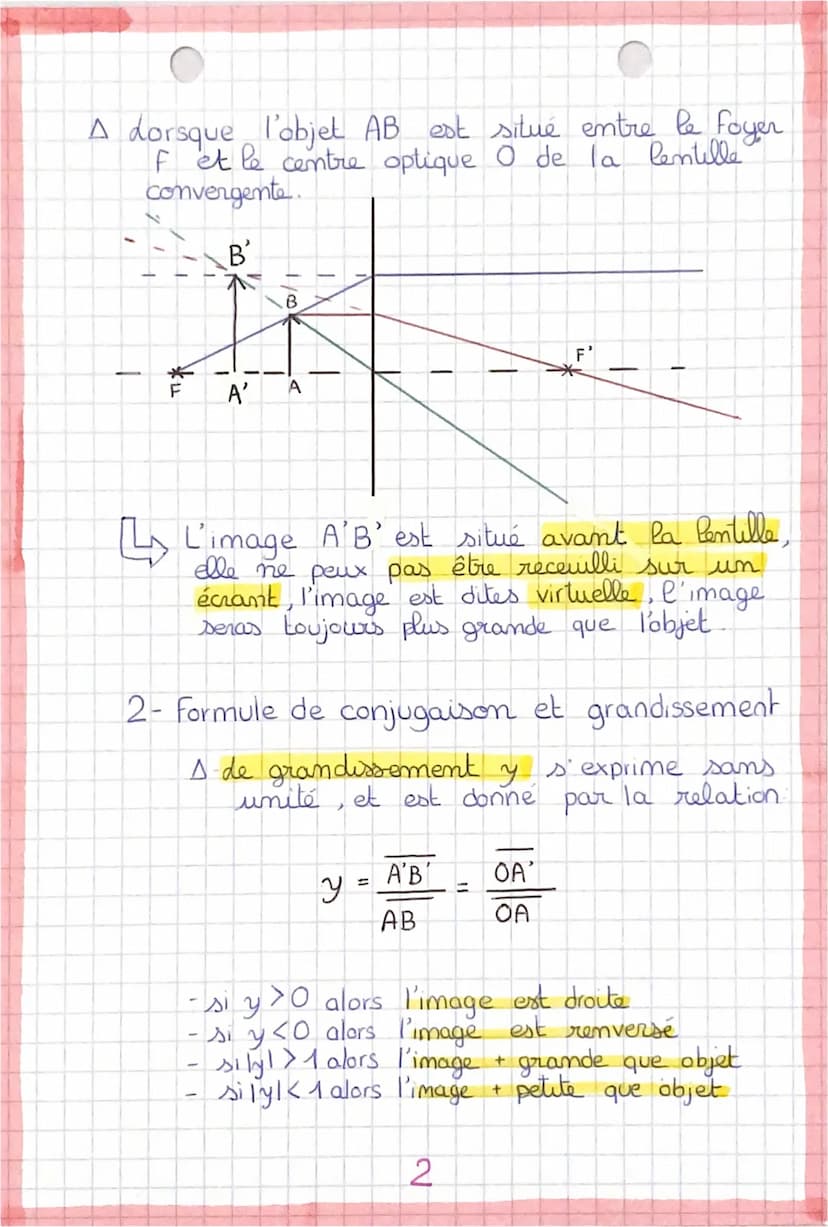 Δ Lorsque l'objet AB est situé entre le foyer
F et le centre optique O de la lentille
convergente.
B'
B
F'
F
A'
A
L'image A'B' est situé avant la lentille,
elle ne peux pas être receuilli sur un
écrant, l'image est dites virtuelle, l'image
seras toujours plus grande que l'objet.
2- Formule de conjugaison et grandissement
Δ Le grandissement y s'exprime sans
unité, et est donné par la relation:
y = A'B' / AB = OA' / OA
- si y > 0 alors l'image est droite
- si y < 0 alors l'image est renversé
- si |y| > 1 alors l'image + grande que objet
- si |y| < 1 alors l'image + petite que objet
2